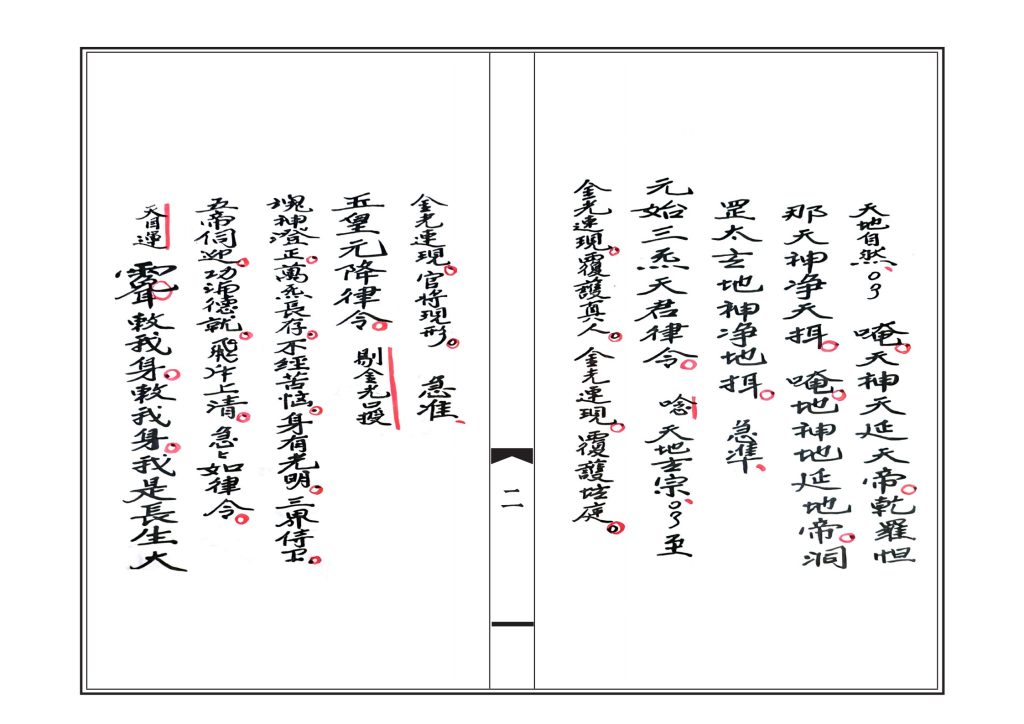 天地自然 唵天神天延天帝乾羅怛
那天神净天揖唵地神地延地帝洞
罡太玄地神净地揖 急准
元始三炁天君律令 唸天地玄宗 至
金光速現覆護真人金光速現覆護坛庭
二
金光速現官将現形 急准
五皇元降律令 剔金光吕授
塊神澄正萬炁長存不經苦惱身有光明三界侍卫
五帝伺迎功滿德就飛升上清急々如律令
天目運 敕我身敕我身我是長生大